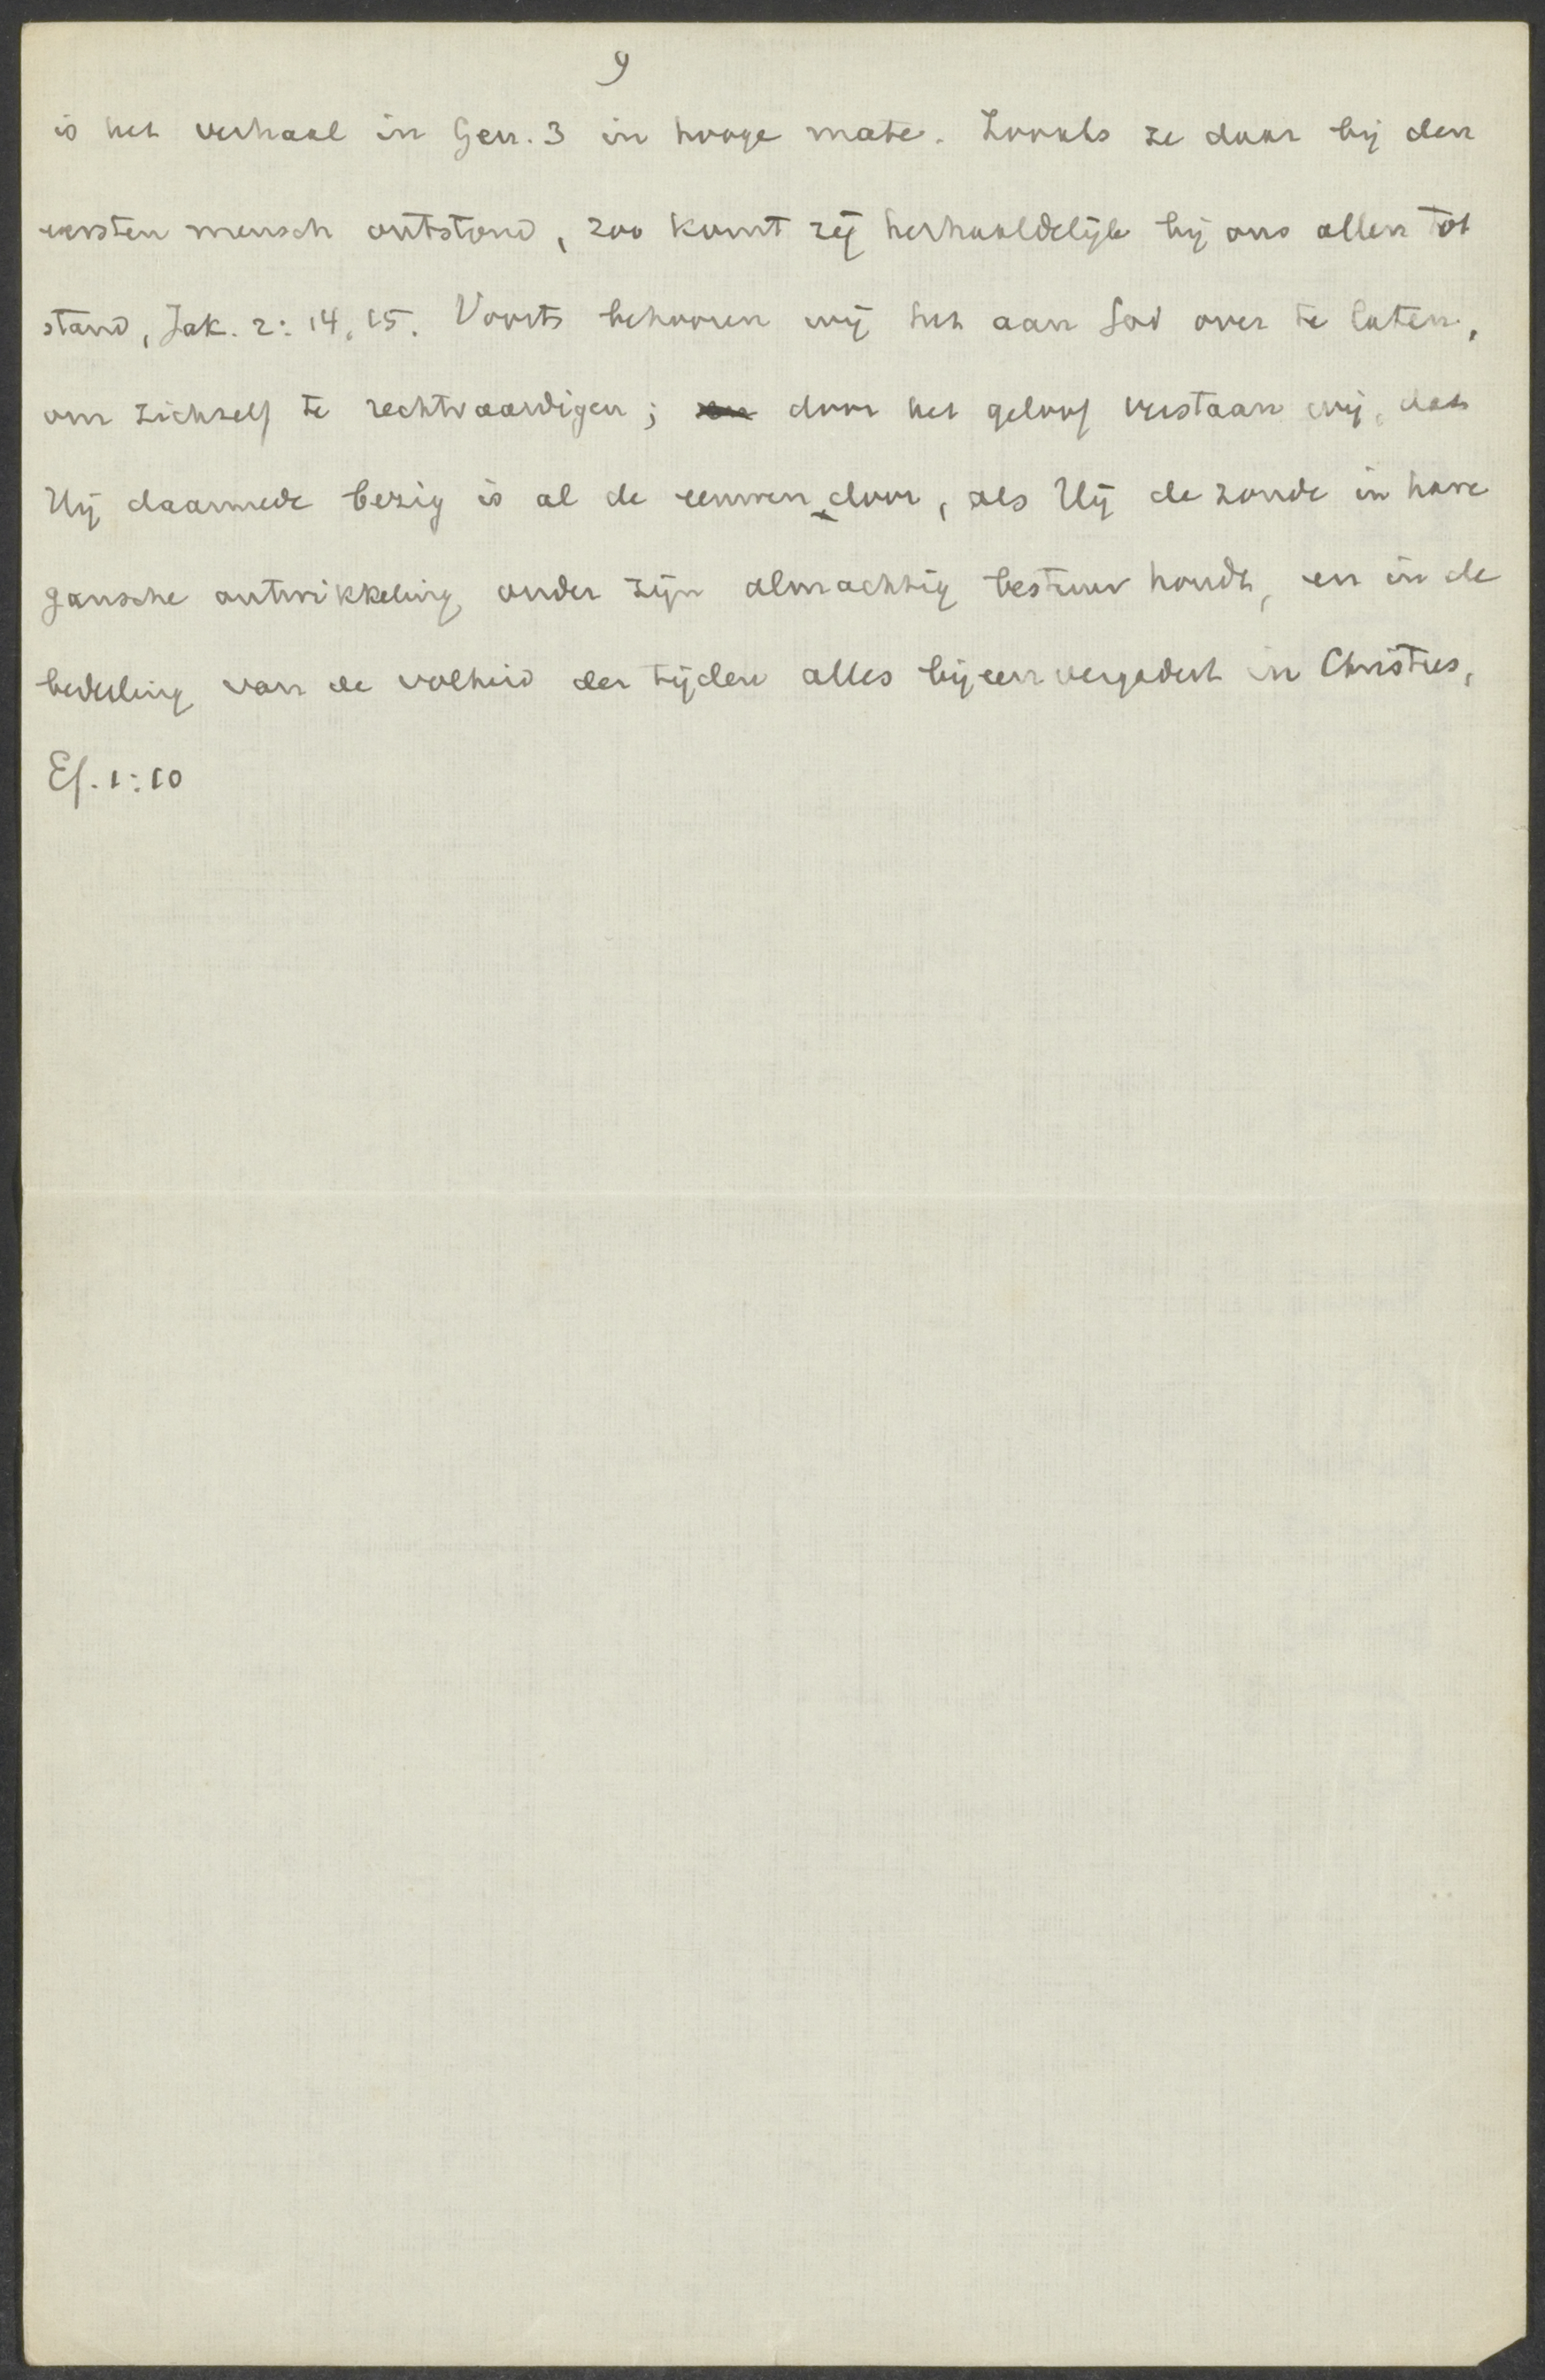 9
is het verhaal in Gen. 3 in hooge mate. Zooals ze daar bij den
eersten mensch ontstond, zoo komt zij herhaaldelijk bij ons allen tot
stand, Jak. 2: 14, 15. Voorts behooren wij het aan God over te laten,
om zichzelf te rechtvaardigen; door het geloof verstaan wij, dat
Hij daarmede bezig is al de eeuwen door, als Hij de zonde in hare
gansche ontwikkeling onder zijn almachtig bestuur houdt, en in de
bedeeling van de volheid der tijden alles bijeenvergadert in Christus,
Ef. 1:10